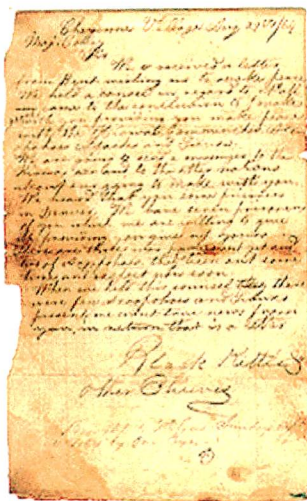 Cheyenne Village Aug 29th/64
Maj. Colley
Sir
We received a letter
from Bent wishing us to make peace
We held a consel in regard to it & all
came to the conclusion to make
peace with you providing you make peace
with the Kiowas Commenches
Apaches and Siouxs
We are going to send a messenger to the
Kiowas and to the other nations
about our going to make with you
We heard that you some prisoners
in Denver. We have seven prisoners
of you which we are willing to give
up providing you give up yours
There are three war parties out yet and
two of Arrapahoes, they
time and expect now soon
When we held this counsel there
were few Arrapahoes and Siouxs
present, we want true news from
you in return that is a letter
Black Kettle
other Chieves